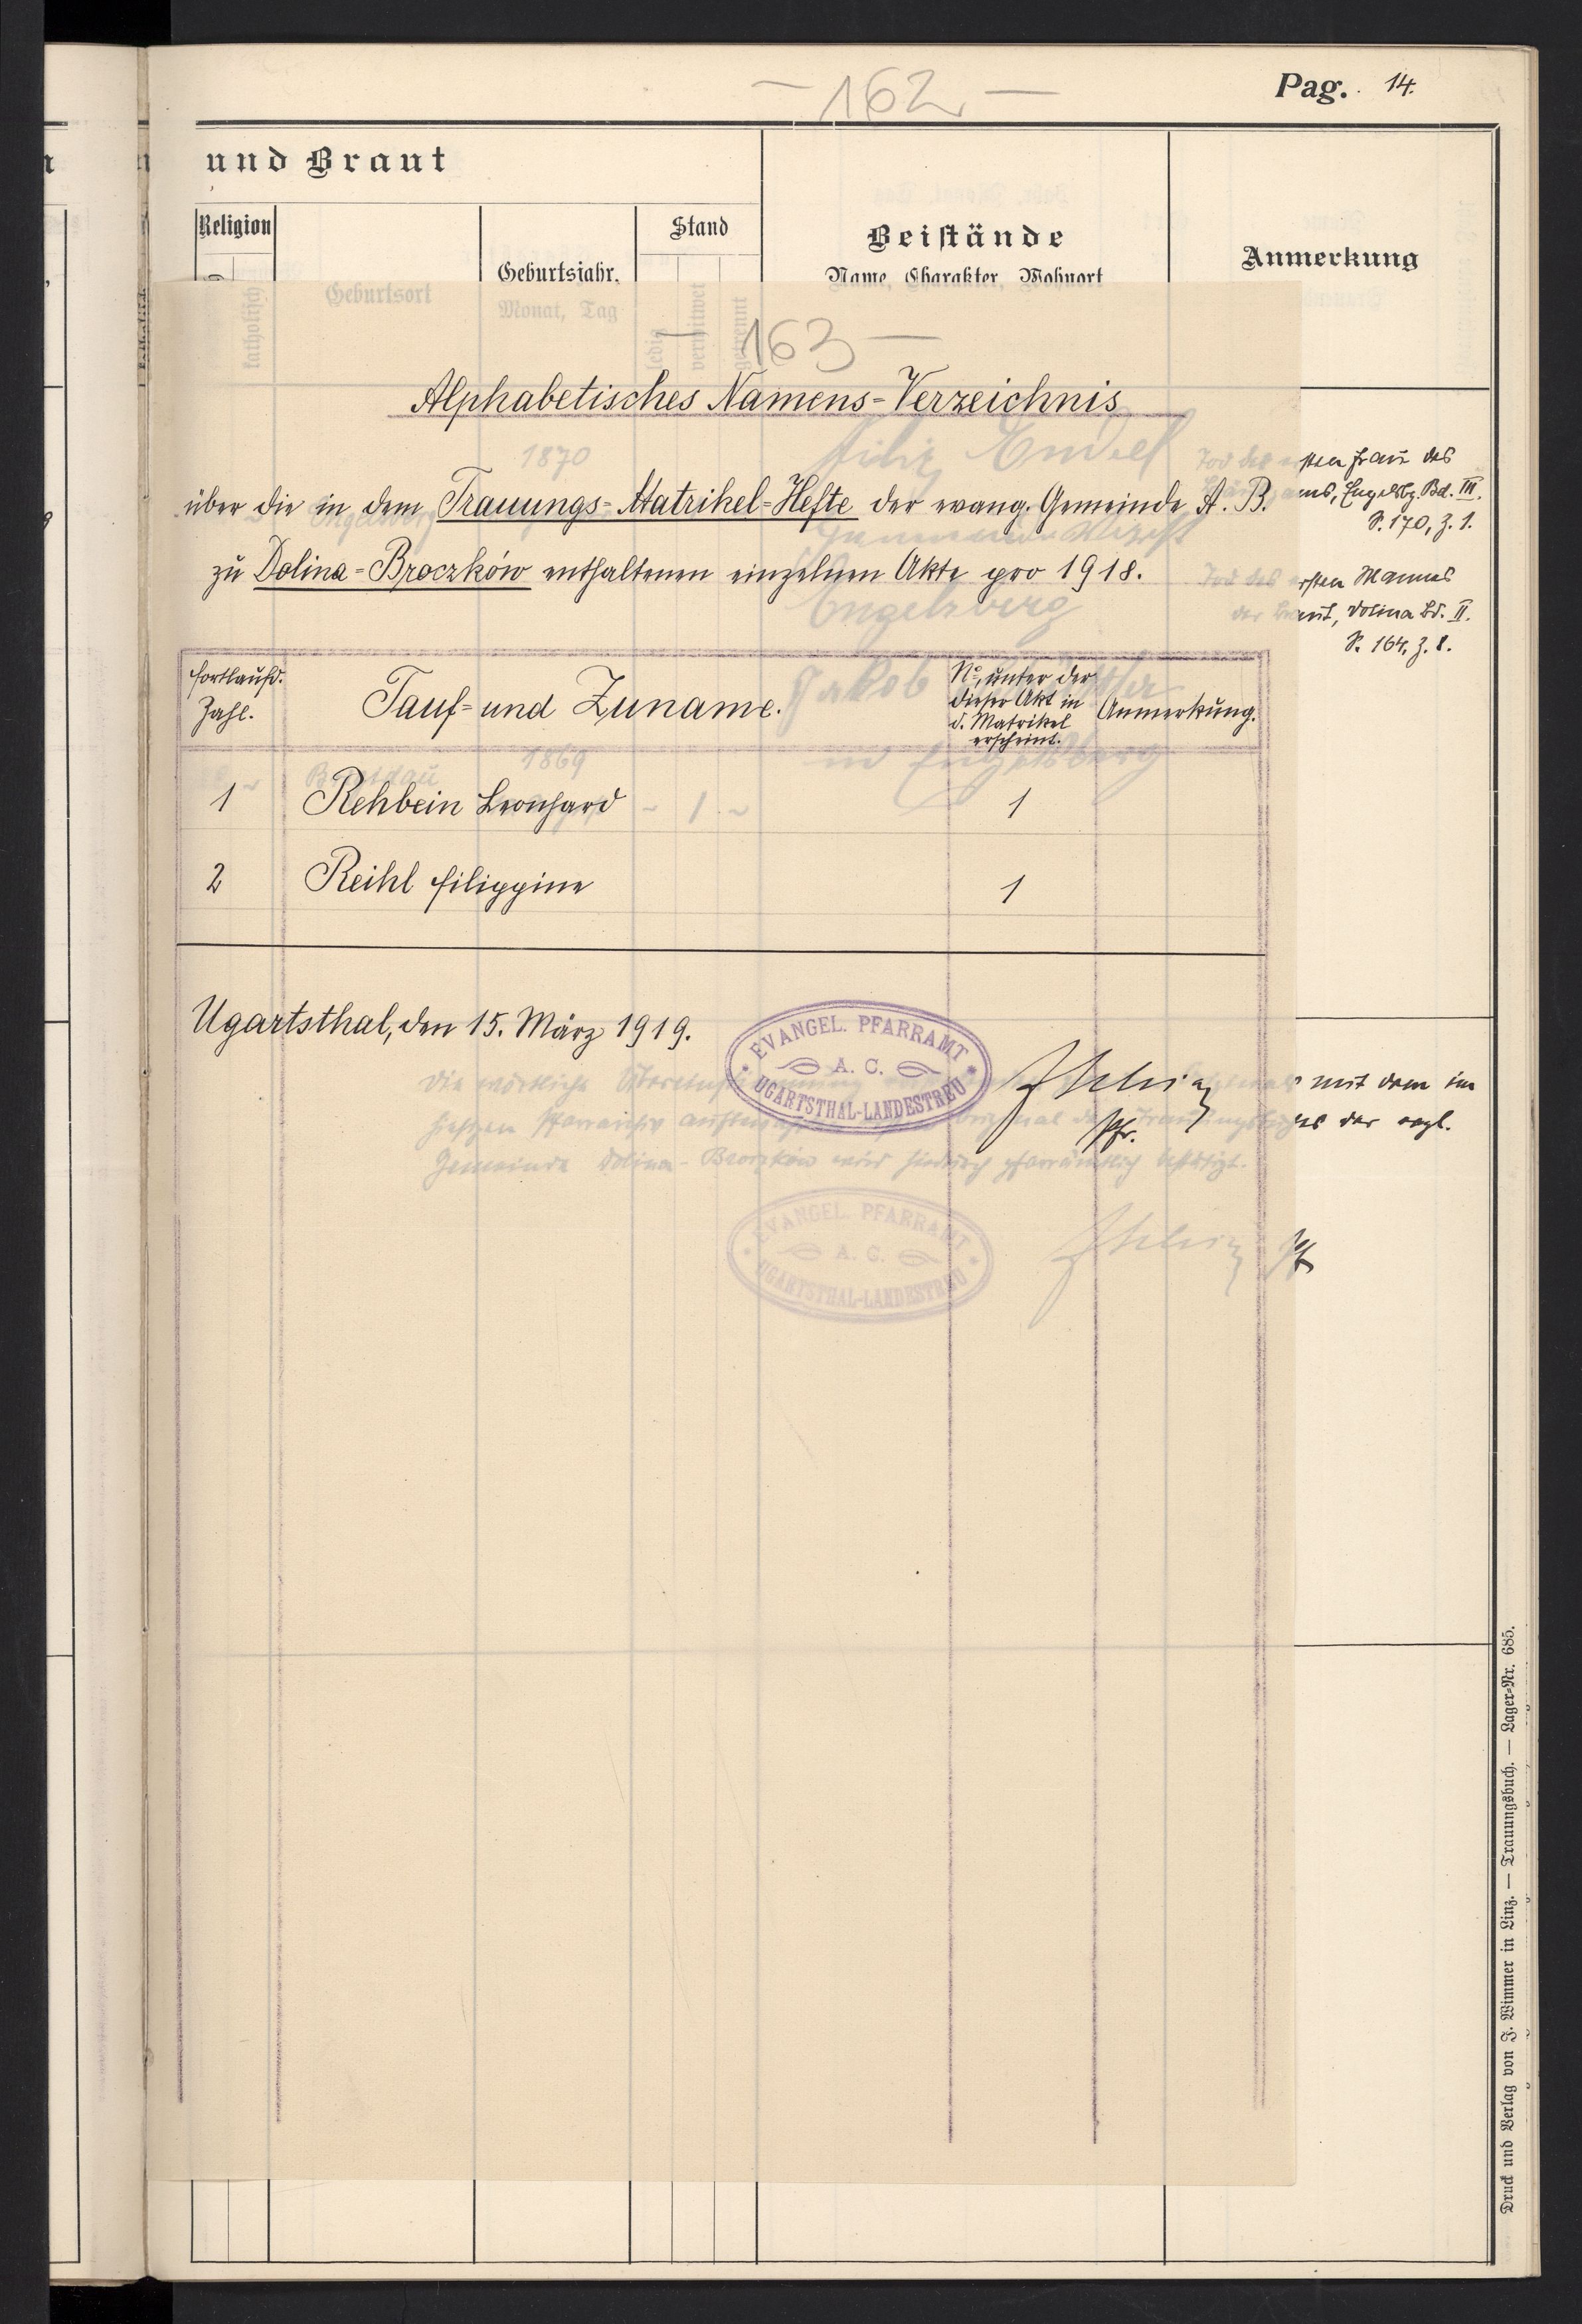 - 162 -
Pag. 14.
und Braut
Religion
Geburtsort
Geburtsjahr,
Monat, Tag
Stand
katholisch
ledig
verwitwet
getrennt
Beistände
Name, Charakter, Wohnort
Anmerkung
- 163 -
Alphabetisches Namens-Verzeichnis
über die in dem Trauungs-Matrikel-Hefte der evang. Gemeinde A. B.
zu Dolina-Broczków enthaltenen einzelnen Akte pro 1918.
fortlaufd. Zahl.
Tauf- und Zuname.
No, unter der
dieser Akt in
d. Matrikel
erscheint.
Anmerkung.
1 Rehbein Leonhard 1
2 Reihl Filippine 1
Ugartsthal, den 15. März 1919.
EVANGEL. PFARRAMT
A. C.
UGARTSTHAL-LANDESTREU
Pfr.
1870
Engelsberg
Jakob
1869
in Engelsberg
Tod der ersten Frau des
Engelsbg. Bd. III.
S. 170, Z. 1.
Tod des ersten Mannes
der Braut, Dolina Bd. II.
S. 164, Z. 8.
Die wörtliche Übereinstimmung mit dem im
hiesigen Pfarrarchiv Original des der evgl.
Gemeinde Dolina-Broczków wird hiedurch pfarrämtlich bestätigt.
EVANGEL. PFARRAMT
A. C.
UGARTSTHAL-LANDESTREU
Druck und Verlag von J. Wimmer in Linz. — Trauungsbuch. — Lager-Nr. 685.